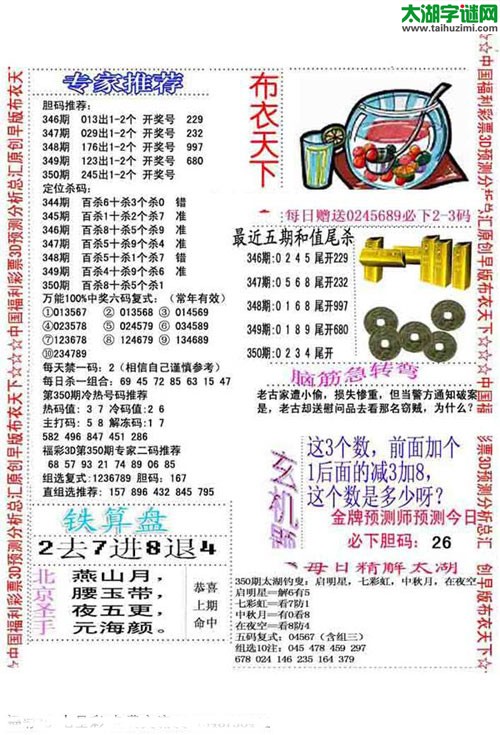 太湖字谜网
www.taihuzimi.com
专家推荐
胆码推荐:
346期 013出1-2个 开奖号 229
347期 029出1-2个 开奖号 232
348期 176出1-2个 开奖号 997
349期 123出1-2个 开奖号 680
350期 245出1-2个 开奖号
定位杀码:
344期 百杀6十杀3个杀0 错
345期 百杀1十杀7个杀2 准
346期 百杀9十杀6个杀4 准
347期 百杀8十杀9个杀5 准
348期 百杀5十杀1个杀7 错
349期 百杀4十杀9个杀6 准
350期 百杀8十杀5个杀1
万能100%中奖六码复式: (常年有效)
①013567 ② 013568 ③ 014569
④023578 ⑤ 024579 ⑥ 034589
⑦123678 ⑧ 124679 ⑨ 134689
⑩234789
每天禁一码: 2 (相信自己谨慎参考)
每日杀一组合: 69 45 72 85 63 15 47
第350期冷热号码推荐
热码值: 3 7 冷码值: 2 6
主打码: 5 8 解冻码: 1 7
582 496 847 451 286
福彩3D第350期专家二码推荐
68 57 93 21 74 89 06 85
组选复式: 1236789 胆码: 167
直组选推荐: 157 896 432 845 795
布衣天下
每日赠送0245689必下2-3码
最近五期和值尾杀
346期:0 2 4 5 尾开229
347期:0 5 6 8 尾开232
348期:0 1 6 8 尾开997
349期:0 1 8 9 尾开680
350期:0 2 3 4 尾开
脑筋急转弯
老古家遭小偷, 损失惨重, 但当警方通知破案
是, 老古却送慰问品去看那名窃贼, 为什么?
这3个数, 前面加个
1后面的减3加8,
这个数是多少呀?
金牌预测师预测今日
必下胆码: 26
铁算盘
2去7进8退4
北京圣手
燕山月,
腰玉带,
夜五更,
元海颜。
恭喜
上期
命中
每日精解太湖
350期太湖钓叟: 启明星, 七彩虹, 中秋月, 在夜空
启明星=解6有5
七彩虹=看7防1
中秋月=有0看8
在夜空=看8防4
五码复式: 04567 (含组三)
组选10注: 045 478 459 297
678 024 146 235 164 379